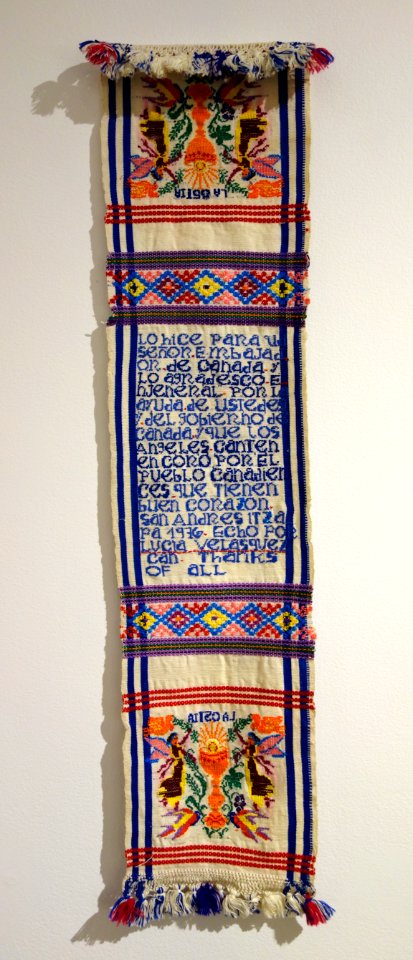 LA OSTIA
LO HICE PARA U
SEÑOR. EMBAJAD
OR. DE CANADA. y
LO AGRADESCO. E
HJENERAL. POR L
AYUDA. DE USTEDE
y. DEL GOBIERNO. DE
CANADA. y QUE LOS
ANGELES. CANTEN
EN CORO POR EL
PUEBLO CANADIEN
CES QUE TIENEN
BUEN CORAZON.
SAN ANDRES ITZA
PA 1976. ECHO POR
LUCIA VELASQUEZ
CAN. THANKS
OF ALL
LA OSTIA